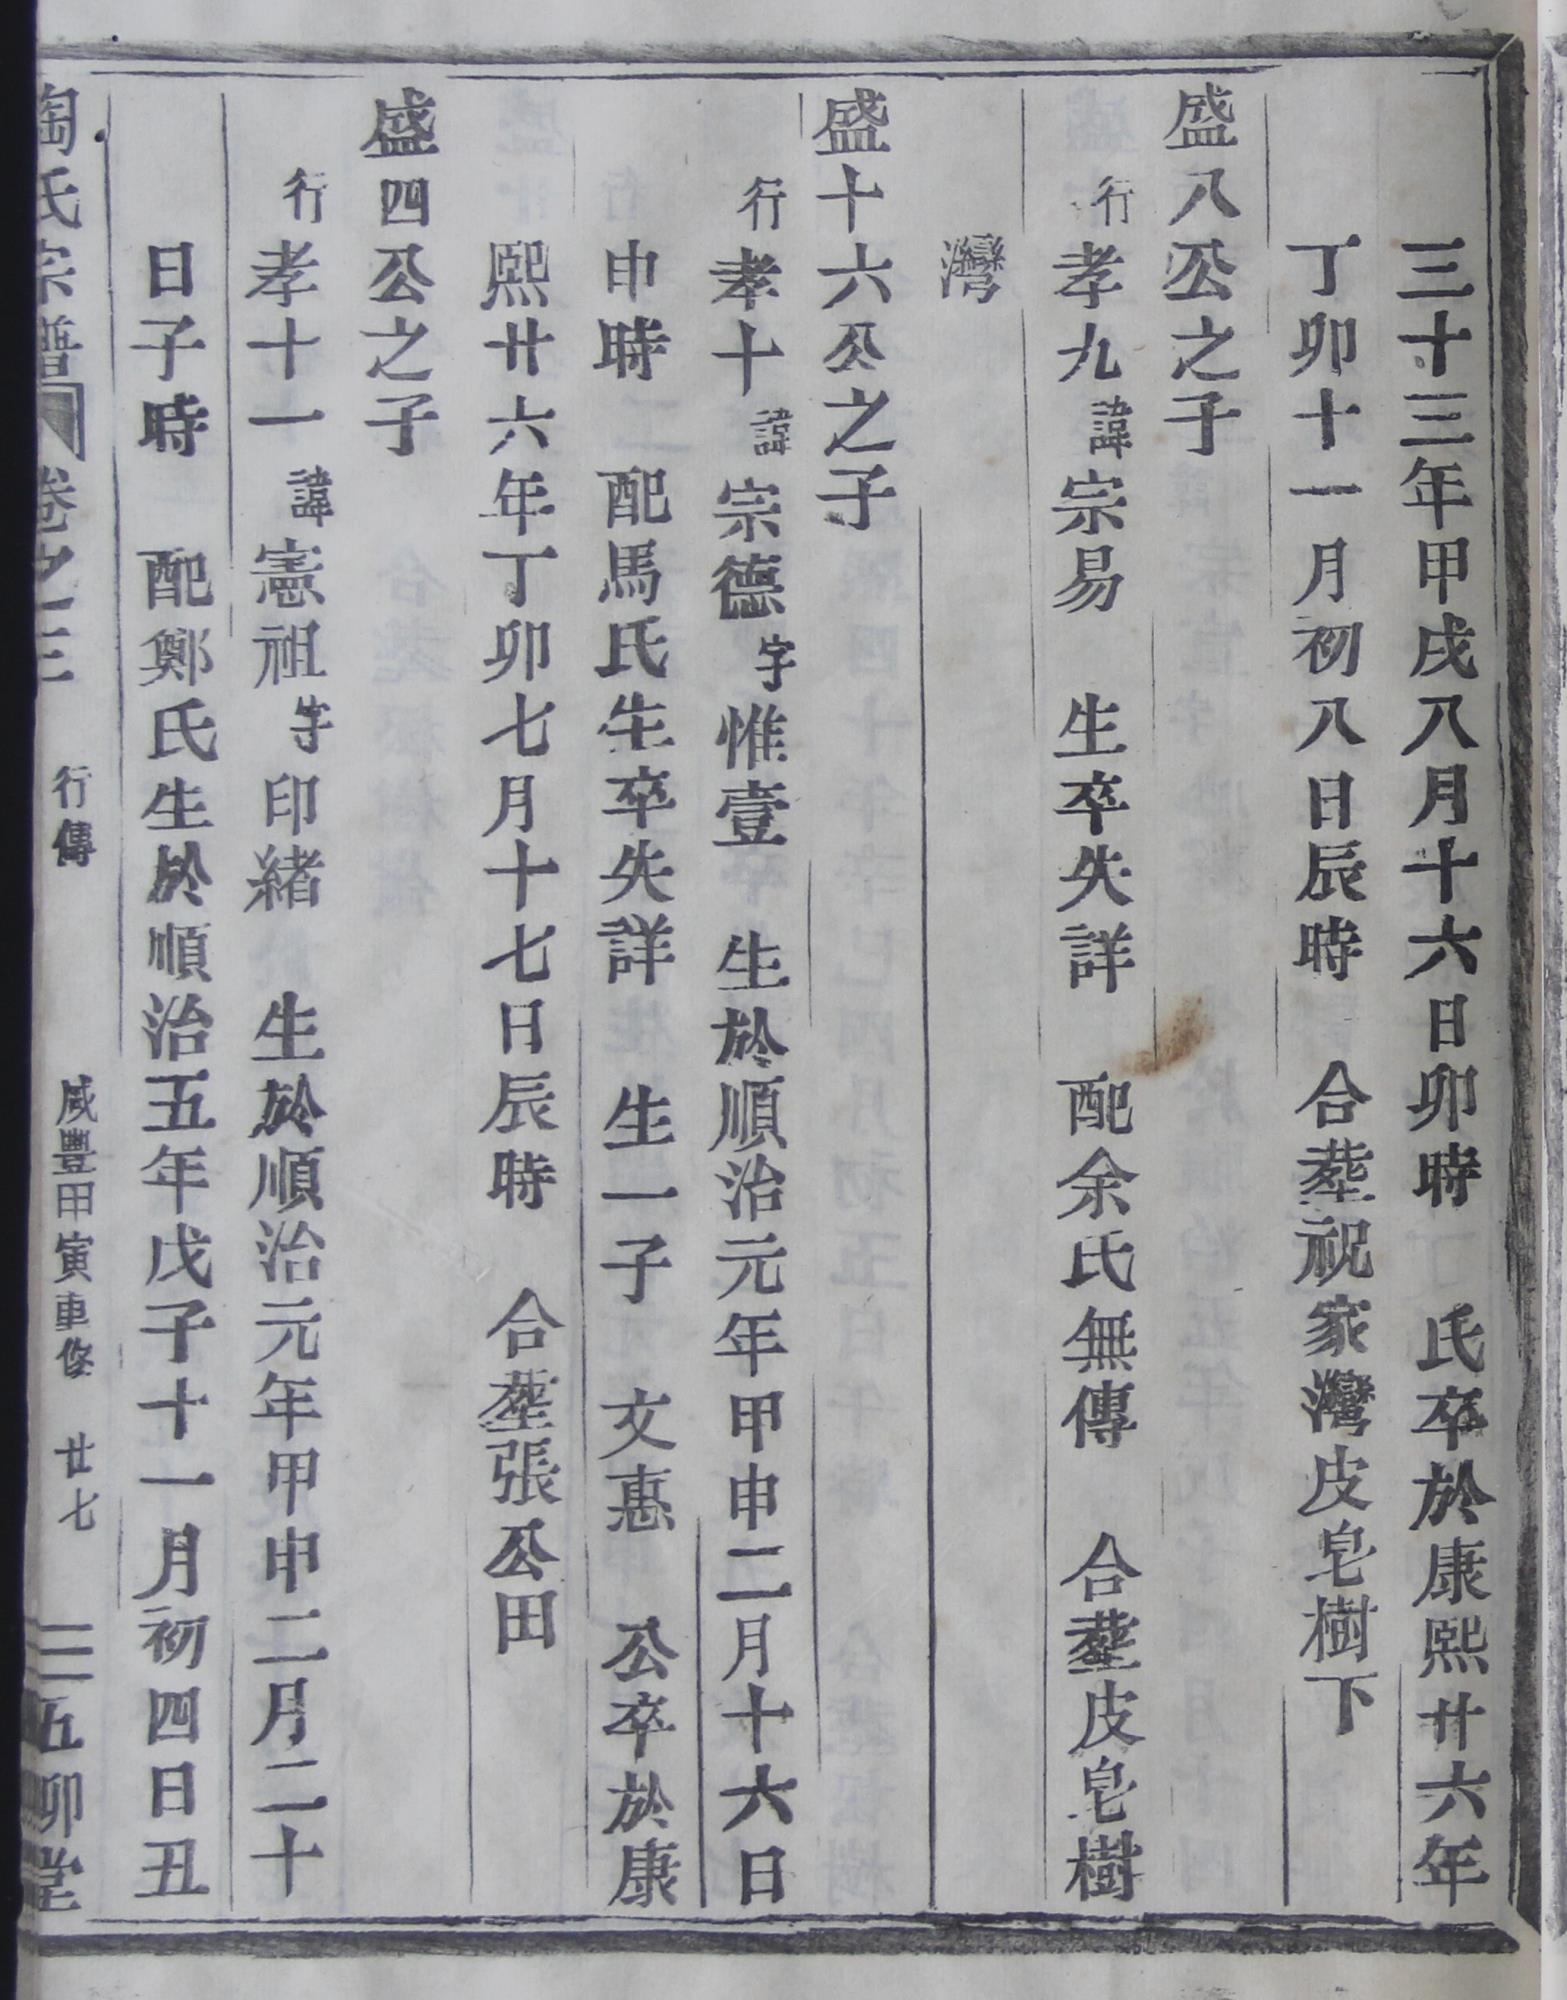 三十三年甲戌八月十六日卯時　氏卒於康熙廿六年
丁卯十一月初八日辰時　合塟祝家灣皮皂樹下
盛八公之子
行孝九諱宗易　生卒失詳　配余氏無傳　合塟皮皂樹
灣
盛十六公之子
行孝十諱宗德字惟壹　生於順治元年甲申二月十六日
申時　配馬氏生卒失詳　生一子　文惪　公卒於康
熙廿六年丁卯七月十七日辰時　合塟張公田
盛四公之子
行孝十一諱憲祖字印緒　生於順治元年甲申二月二十
日子時　配鄭氏生於順治五年戊子十一月初四日丑
陶氏宗譜　卷之三　行傳　咸豐甲寅重修　廿七　五卯堂